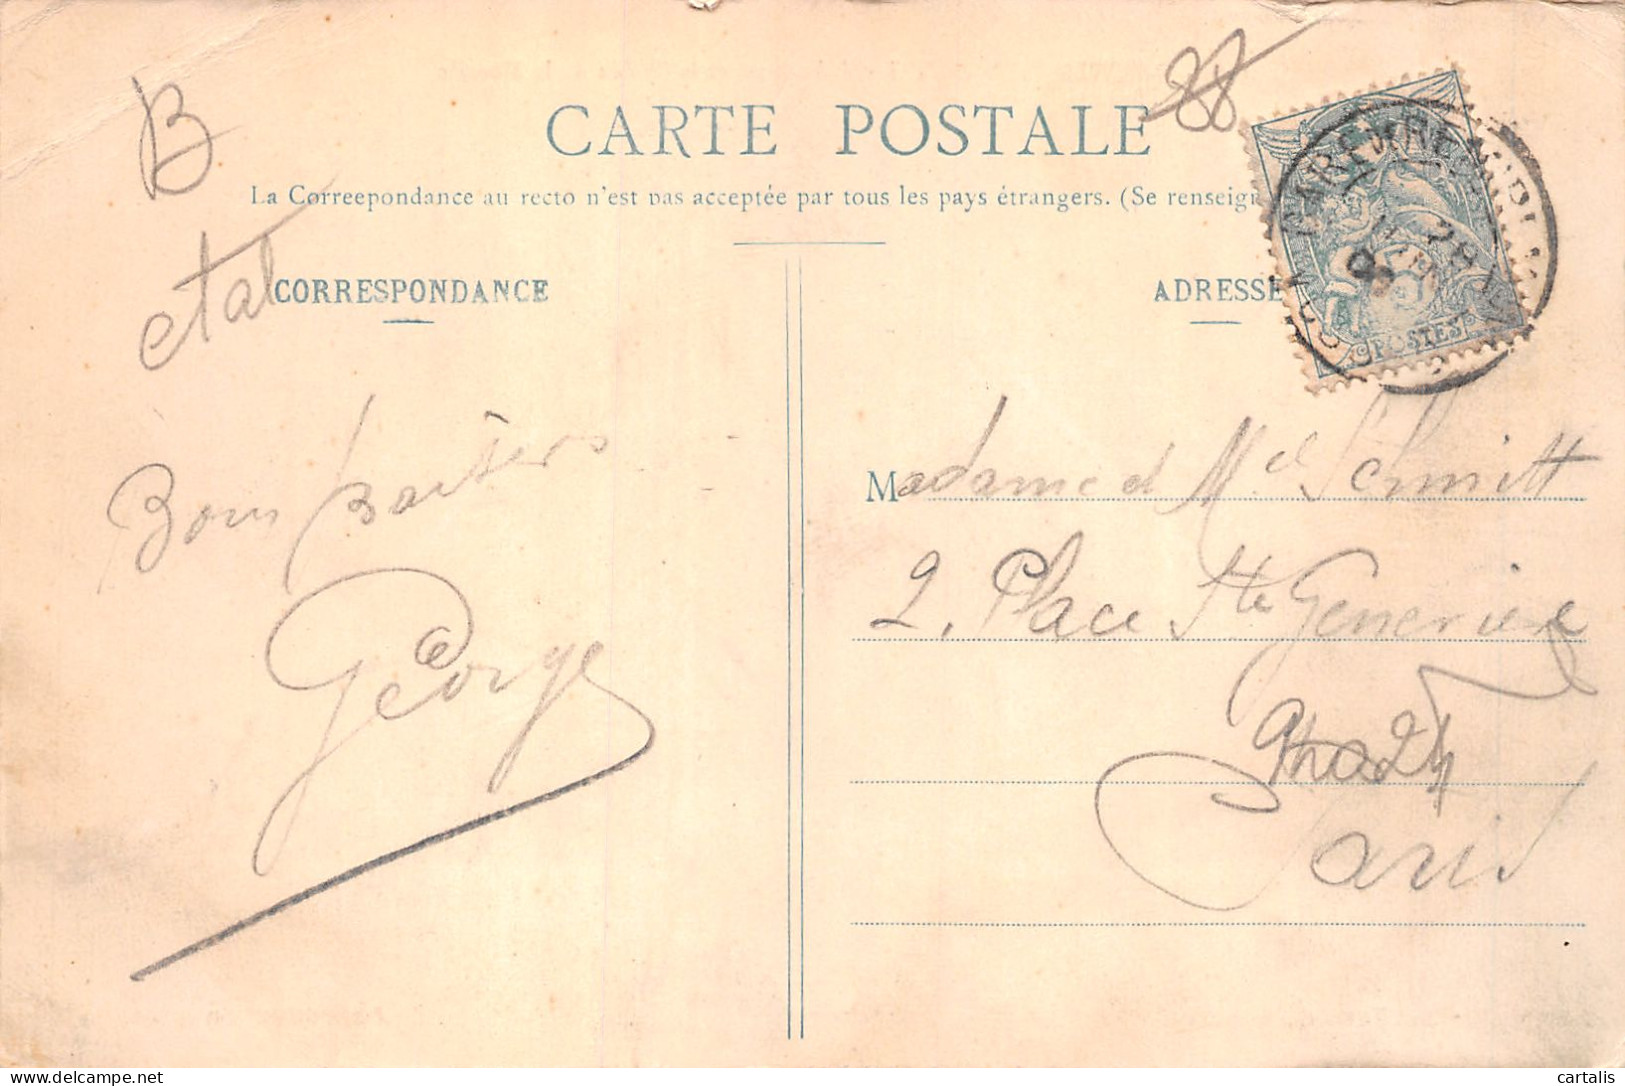 B
88
CARTE POSTALE
La Correepondance au recto n'est pas acceptée par tous les pays étrangers. (Se renseign
etal
CORRESPONDANCE
ADRESSE
POSTES
Bons baisers
George
Madame et Mel Schmitt
2, Place Ste Geneviève
Paris
cartalis